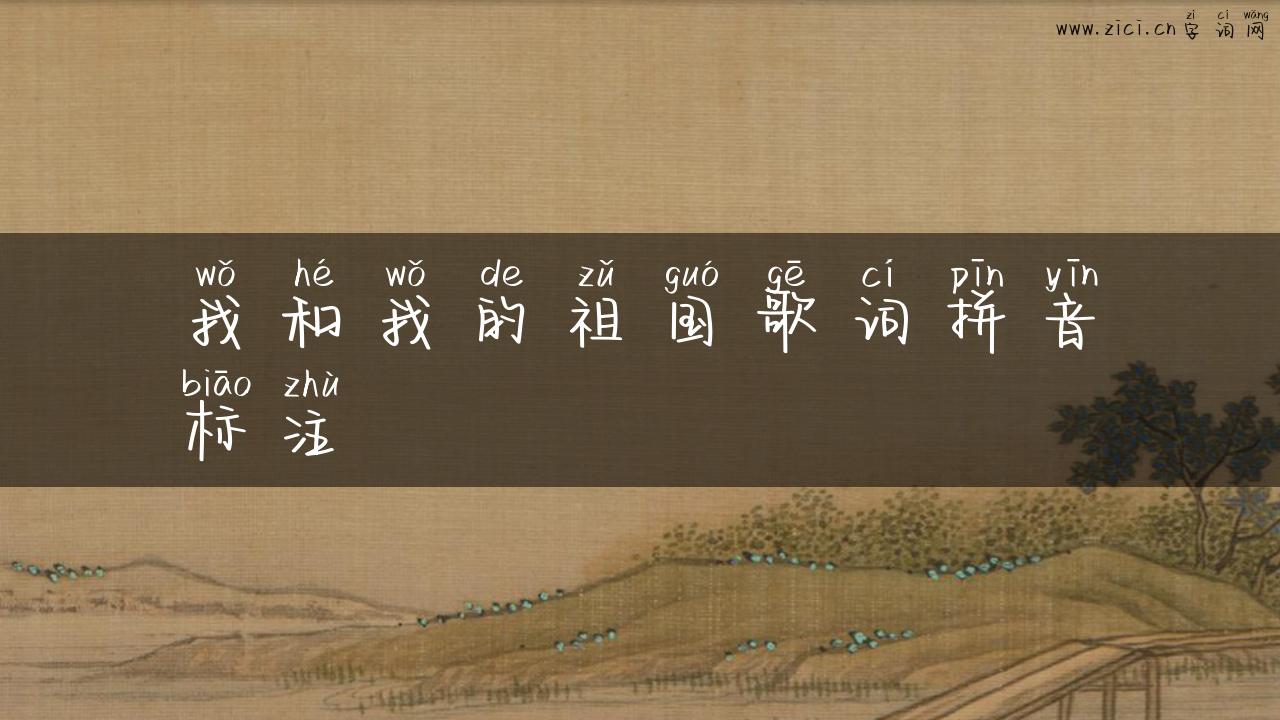 zì cí wǎng
www.zici.cn 字 词 网
wǒ hé wǒ de zǔ guó gē cí pīn yīn
我 和 我 的 祖 国 歌 词 拼 音
biāo zhù
标 注